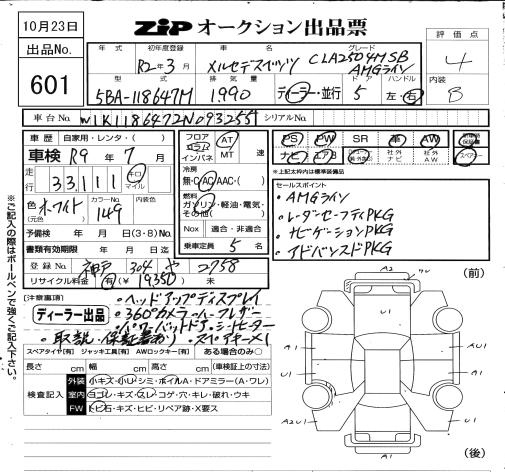 10月23日
ZIP オークション出品票
出品No.
601
評価点
4
内装
B
年式 初年度登録 車名 グレード
R2年3月 メルセデスベンツ CLA250 4M SB
AMGライン
型式 排気量 ドア ハンドル
5BA-118647M 1990 ディーラー・並行 5 左・右
車台No. W1K1186472N093255 シリアルNo.
車歴 自家用・レンタ・( )
車検 R9年 7月
走行 33,111 キロ マイル
色 ホワイト カラーNo. 149 内装色
(元色)
予備検 年 月 日(3・8)No.
書類有効期限 年 月 日迄
登録No. 神戸 304 や 2758
リサイクル料金 有(¥19350) 未
フロア コラム インパネ AT MT 速
冷房
無・C・AC・AAC・( )
燃料
ガソリン・軽油・電気・その他( )
Nox 適合・非適合
乗車定員 5 名
PS PW SR 革 AW 新車時保証書
ナビ エアB 社外ナビ 社外AW
*上記太枠内は標準装備品
セールスポイント
・AMGライン
・レーダーセーフティPKG
・ナビゲーションPKG
・アドバンスドPKG
[注意事項]
ディーラー出品
・ヘッドアップディスプレイ
・360°カメラ
・パワーバックドア・シートヒーター
・取説・保証書あり・スペアキー×1
スペアタイヤ[有] ジャッキ工具[有] AWロックキー[有] ある場合のみ○
長さ cm 幅 cm 高さ cm (車検証上の寸法)
検査記入
外装 小キズ・小U・シミ・ホイルA・ドアミラー(A・ワレ)
室内 ヨゴレ・キズ・スレ・コゲ・穴・キレ・破れ・ウキ
FW トビ石・キズ・ヒビ・リペア跡・X要ス
※ご記入の際はボールペンで強くご記入下さい。
(前)
A2
A1
U1
A1
U1
A1
A2U1
U1
A1
(後)